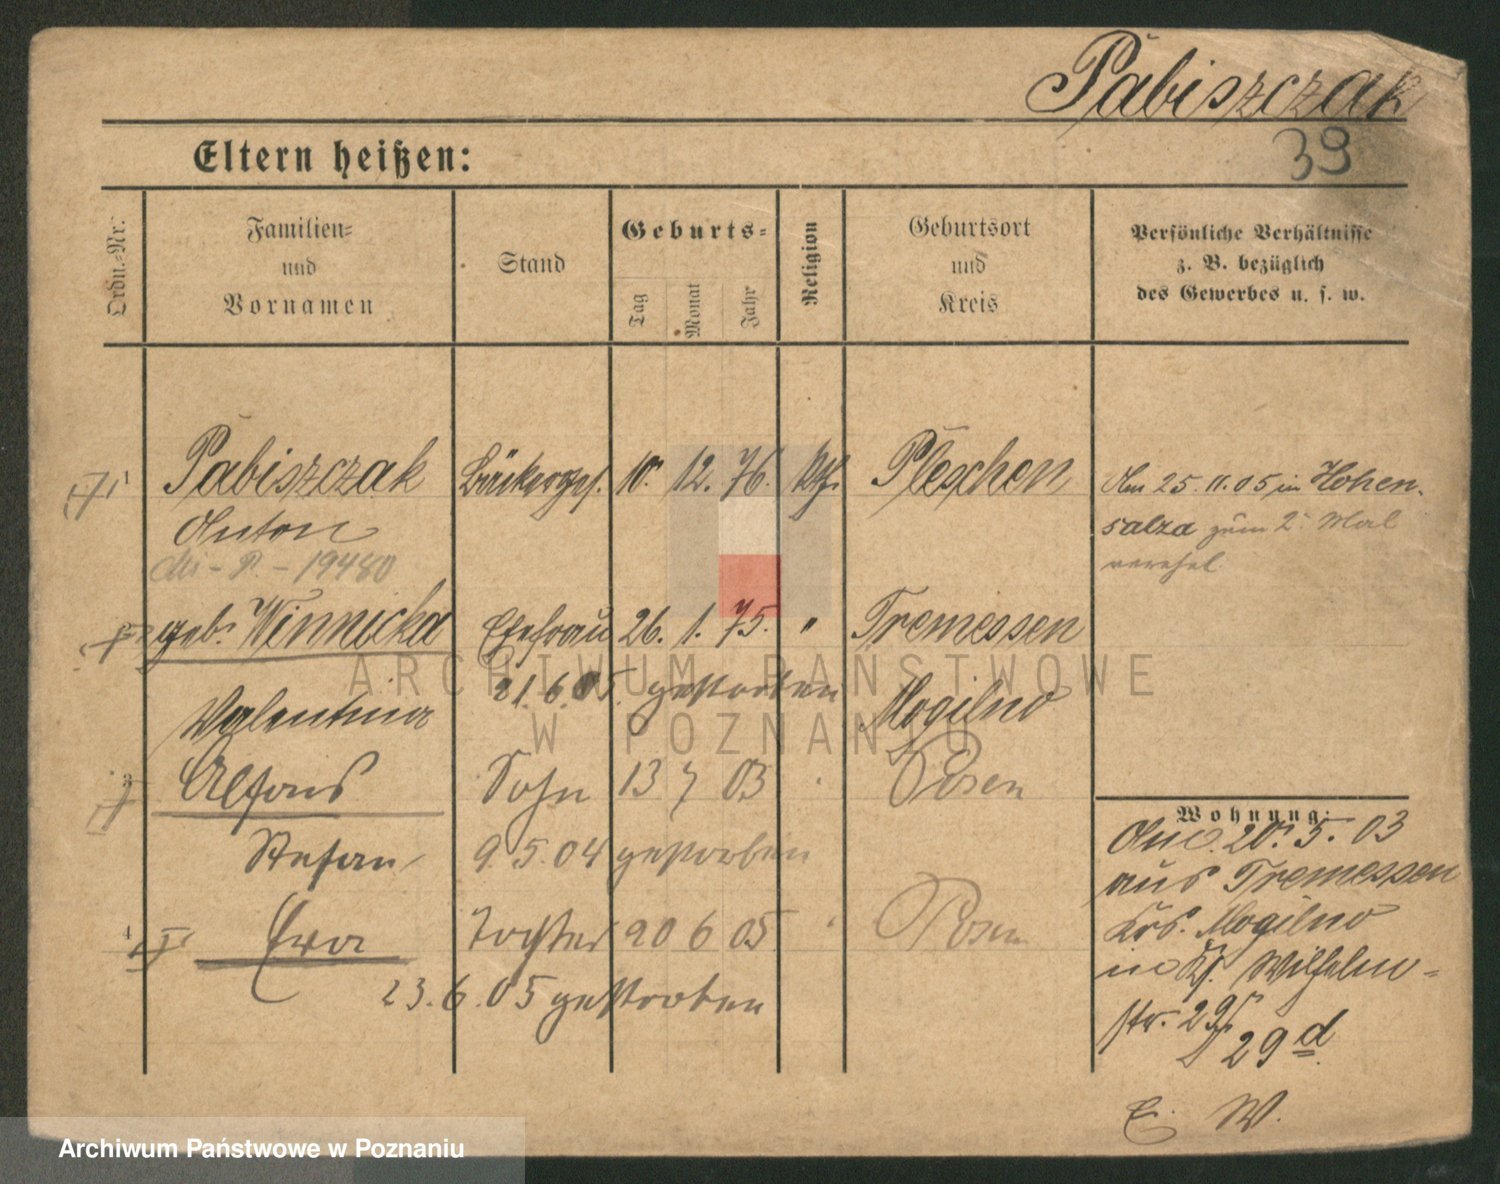 Pabiszczak
39
Eltern heißen:
Ordn.-Nr.
Familien-
und
Vornamen
Stand
Geburts-
Tag
Monat
Jahr
Religion
Geburtsort
und
Kreis
Persönliche Verhältnisse
z. B. bezüglich
des Gewerbes u. s. w.
1 Pabiszczak Bäckerges. 10. 12. 76. kth. Pleschen
Anton
19480
geb. Winnicka Ehefrau 26. 1. 75. " Tremessen
21.6.05. gestorben
Valentina Mogilno
3 Alfons Sohn 13 7 03 Posen
Stefan 9.5.04 gestorben
4 Ewa Tochter 20 6 05 Posen
23.6.05 gestorben
Am 25.11.05 in Hohen-
salza zum 2. Mal
verehel.
Wohnung:
20.5.03
aus Tremessen
Krs. Mogilno
Wilhelm-
str. 29
29d
E. W.
ARCHIWUM PAŃSTWOWE
W POZNANIU
Archiwum Państwowe w Poznaniu